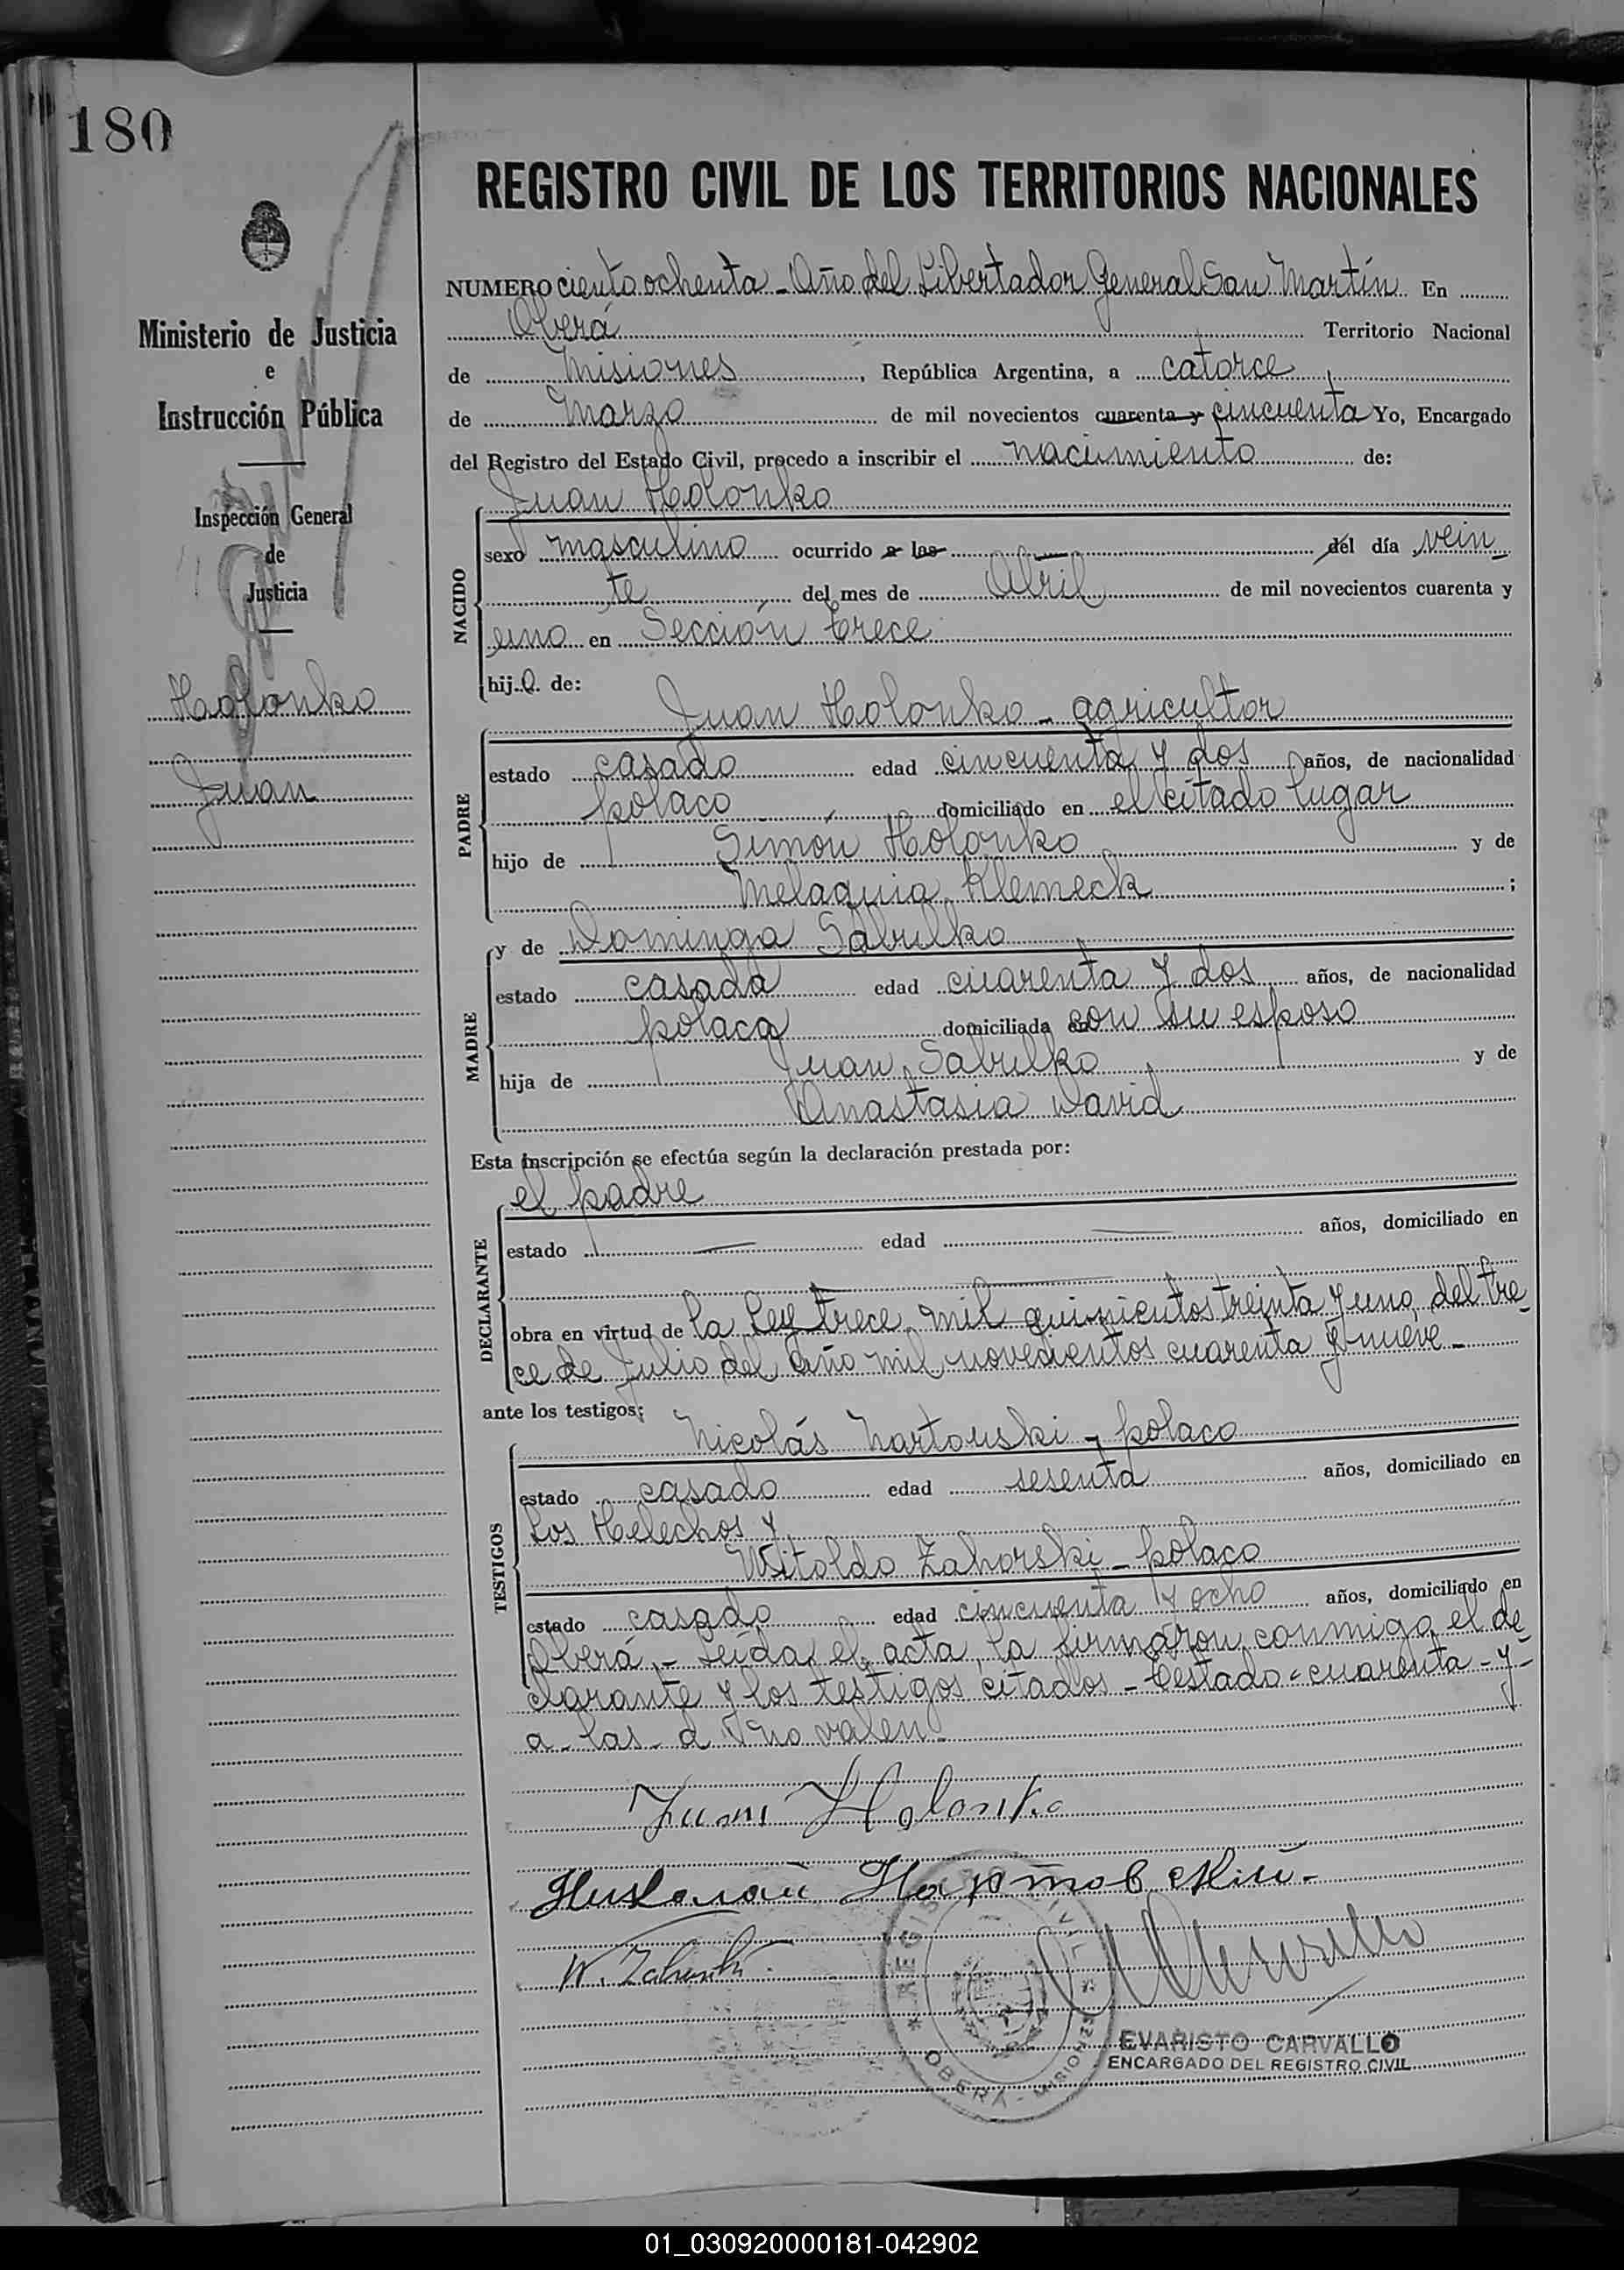 180
REGISTRO CIVIL DE LOS TERRITORIOS NACIONALES
Ministerio de Justicia
e
Instrucción Pública
Inspección General
de
Justicia
Holonko
Juan
NUMERO ciento ochenta - Año del Libertador General San Martín En
Oberá Territorio Nacional
de Misiones, República Argentina, a catorce
de Marzo de mil novecientos cuarenta y cincuenta Yo, Encargado
del Registro del Estado Civil, procedo a inscribir el nacimiento de:
Juan Holonko
NACIDO
sexo masculino ocurrido a las — del día vein
te del mes de Abril de mil novecientos cuarenta y
uno en Sección trece
hijo de:
Juan Holonko - agricultor
PADRE
estado casado edad cincuenta y dos años, de nacionalidad
polaco domiciliado en el citado lugar
hijo de Simón Holonko y de
Melaquia Klemeck ;
y de Dominga Sabulko
MADRE
estado casada edad cuarenta y dos años, de nacionalidad
polaca domiciliada en con su esposo
hija de Juan Sabulko y de
Anastasia David
Esta inscripción se efectúa según la declaración prestada por:
el padre
DECLARANTE
estado — edad — años, domiciliado en
obra en virtud de la Ley trece mil quinientos treinta y uno del tre
ce de Julio del año mil novecientos cuarenta y nueve -
ante los testigos:
Nicolás Nartouski - polaco
TESTIGOS
estado casado edad sesenta años, domiciliado en
Los Helechos y
Witoldo Zahorski - polaco
estado casado edad cincuenta y ocho años, domiciliado en
Oberá.- Leída el acta la firmaron conmigo el de
clarante y los testigos citados - Testado = cuarenta - y -
a - las - d no valen -
Juan Holonko
Николай Нартовский -
W. Zahorski
REGISTRO CIVIL
OBERÁ - MISIONES
EVARISTO CARVALLO
ENCARGADO DEL REGISTRO CIVIL
01_030920000181-042902